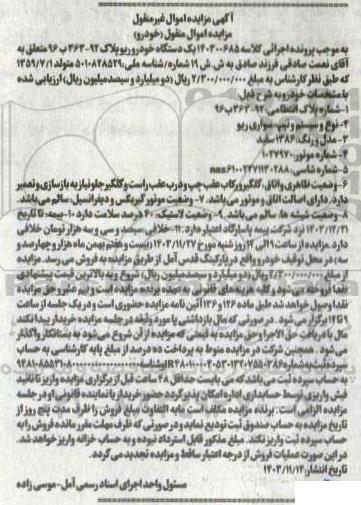 آگهی مزایده اموال غیرمنقول
مزایده اموال منقول (خودرو)
به موجب پرونده اجرائی کلاسه ۱۴۰۳۰۰۶۸۵ یک دستگاه خودرو ریو پلاک ۹۲-۳۶۳ ب ۹۶ متعلق به
آقای نعمت صادقی فرزند صادق به ش.ش ۱۹ شماره/شناسه ملی: متولد ۱۳۵۹/۷/۱
که طبق نظر کارشناس به مبلغ ۲/۳۰۰/۰۰۰/۰۰۰ ریال (دو میلیارد و سیصد میلیون ریال) ارزیابی شده
با مشخصات خودرو به شرح ذیل:
۱- شماره پلاک انتظامی: ۹۲-۳۶۳ ب ۹۶
۲- نوع و سیستم و تیپ: سواری ریو
۳- مدل و رنگ: ۱۳۸۶ سفید
۴- شماره موتور: ۱۰۲۷۹۷۰
۵- شماره شاسی:
۶- وضعیت ظاهری و اتاق: گلگیر و رکاب عقب چپ و درب عقب راست و گلگیر جلو نیاز به بازسازی و تعمیر
دارد. دارای اصالت اتاق و موتور می باشد. ۷- وضعیت موتور گیربکس و دیفرانسیل: سالم می باشد.
۸- وضعیت شیشه ها: سالم می باشد. ۹- وضعیت لاستیک: ۶۰ درصد سلامت دارد ۱۰- بیمه: تا تاریخ
۱۴۰۳/۱۲/۲۱ نزد شرکت بیمه پاسارگاد اعتبار دارد. ۱۱- خلافی: سیصد و سی و سه هزار تومان خلافی
دارد. مزایده از ساعت ۹ الی ۱۲ روز شنبه مورخ ۱۴۰۳/۱۱/۲۷ (بیست و هفتم بهمن ماه هزار و چهارصد و
سه) در محل توقیف خودرو واقع در پارکینگ قدس آمل از طریق مزایده به فروش می رسد. مزایده
از مبلغ ۲/۳۰۰/۰۰۰/۰۰۰ ریال (دو میلیارد و سیصد میلیون ریال) شروع و به بالاترین قیمت پیشنهادی
نقداً فروخته می شود و کلیه هزینه های قانونی به عهده برنده مزایده است و نیم عشر و حق مزایده
نقداً وصول خواهد شد طبق ماده ۱۲۶ و ۱۳۶ آئین نامه مزایده حضوری است و در یک جلسه از ساعت
۹ تا ۱۲ برگزار می شود. در صورتی که مال بازداشتی یا مورد وثیقه در جلسه مزایده خریدار پیدا نکند
مال با دریافت حق الاجرا و حق مزایده به قیمتی که مزایده از آن شروع می شود به بستانکار واگذار
می شود. همچنین شرکت در مزایده منوط به پرداخت ده درصد از مبلغ پایه کارشناسی به حساب
سپرده ثبت به شماره
به حساب سپرده ثبت می باشد که می بایست حداقل ۴۸ ساعت قبل از برگزاری مزایده واریز تا تائید
فیش واریزی توسط حسابداری اداره امکان پذیر گردد حضور خریدار یا نماینده قانونی او در جلسه
مزایده الزامی است. برنده مزایده مکلف است مابه التفاوت مبلغ فروش را ظرف مدت پنج روز از
تاریخ مزایده به حساب صندوق ثبت تودیع نماید و در صورتی که ظرف مهلت مقرر مانده فروش را به
حساب سپرده ثبت واریز نکند. مبلغ مذکور قابل استرداد نبوده و به حساب خزانه واریز خواهد شد.
در این صورت عملیات فروش از درجه اعتبار ساقط و مزایده تجدید می گردد.
تاریخ انتشار: ۱۴۰۳/۱۱/۱۴
مسئول واحد اجرای اسناد رسمی آمل-موسی زاده